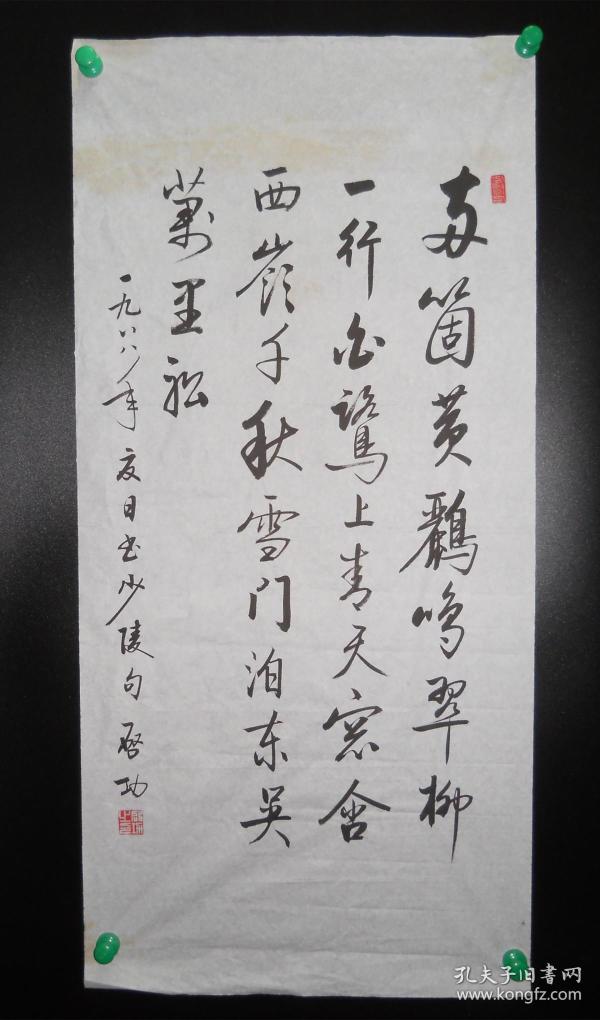 两箇黄鸝鳴翠柳
一行白鷺上青天窓含
西嶺千秋雪門泊东吴
萬里船
一九八八年夏日书少陵句 啓功
孔夫子旧書网
www.kongfz.com